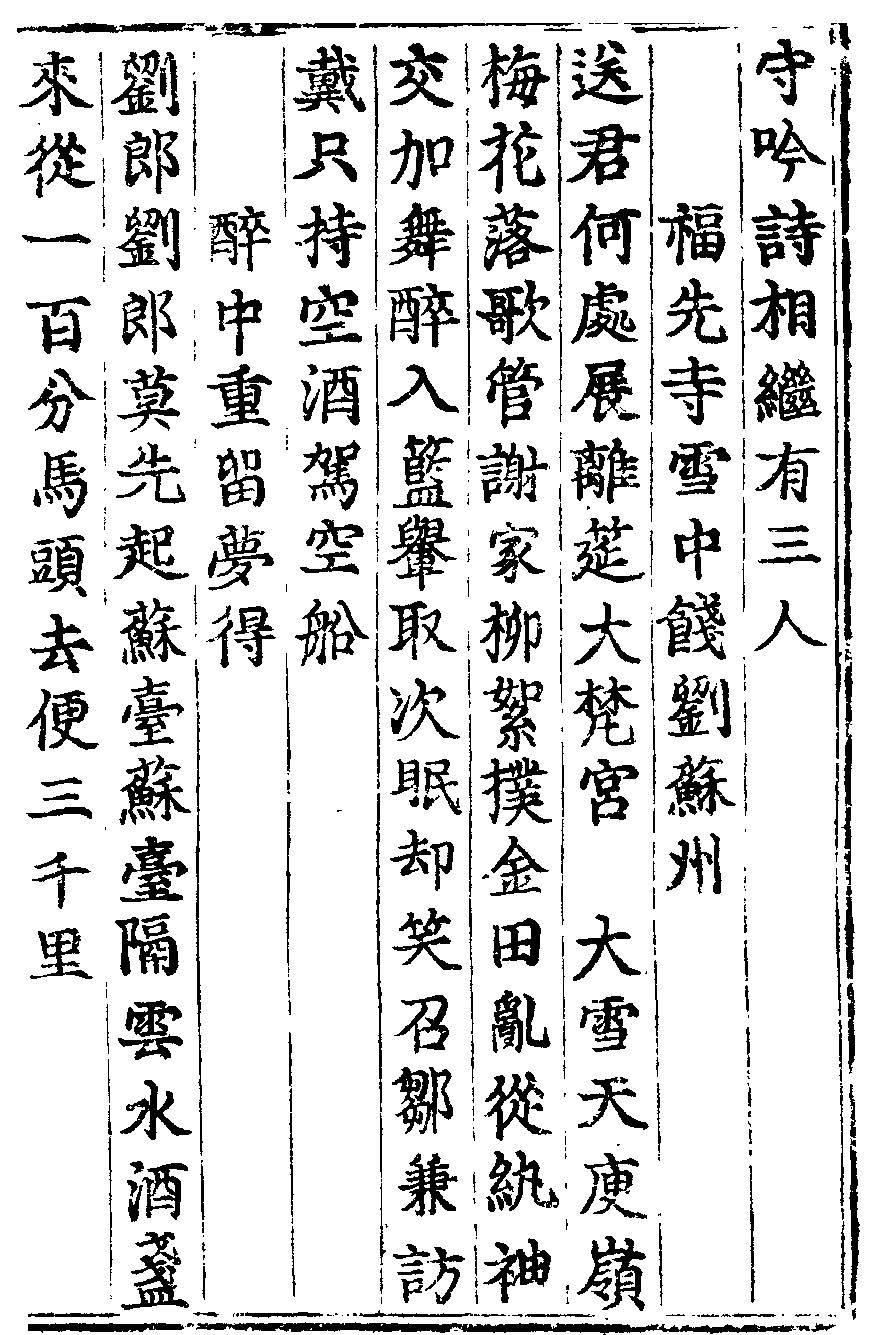 守吟詩相繼有三人
福先寺雪中餞劉蘇州
送君何處展離筵大梵宮　大雪天庾嶺
梅花落歌管謝家柳絮撲金田亂從紈袖
交加舞醉入籃轝取次眠却笑召鄒兼訪
戴只持空酒駕空船
醉中重留夢得
劉郎劉郎莫先起蘇臺蘇臺隔雲水酒盞
來從一百分馬頭去便三千里